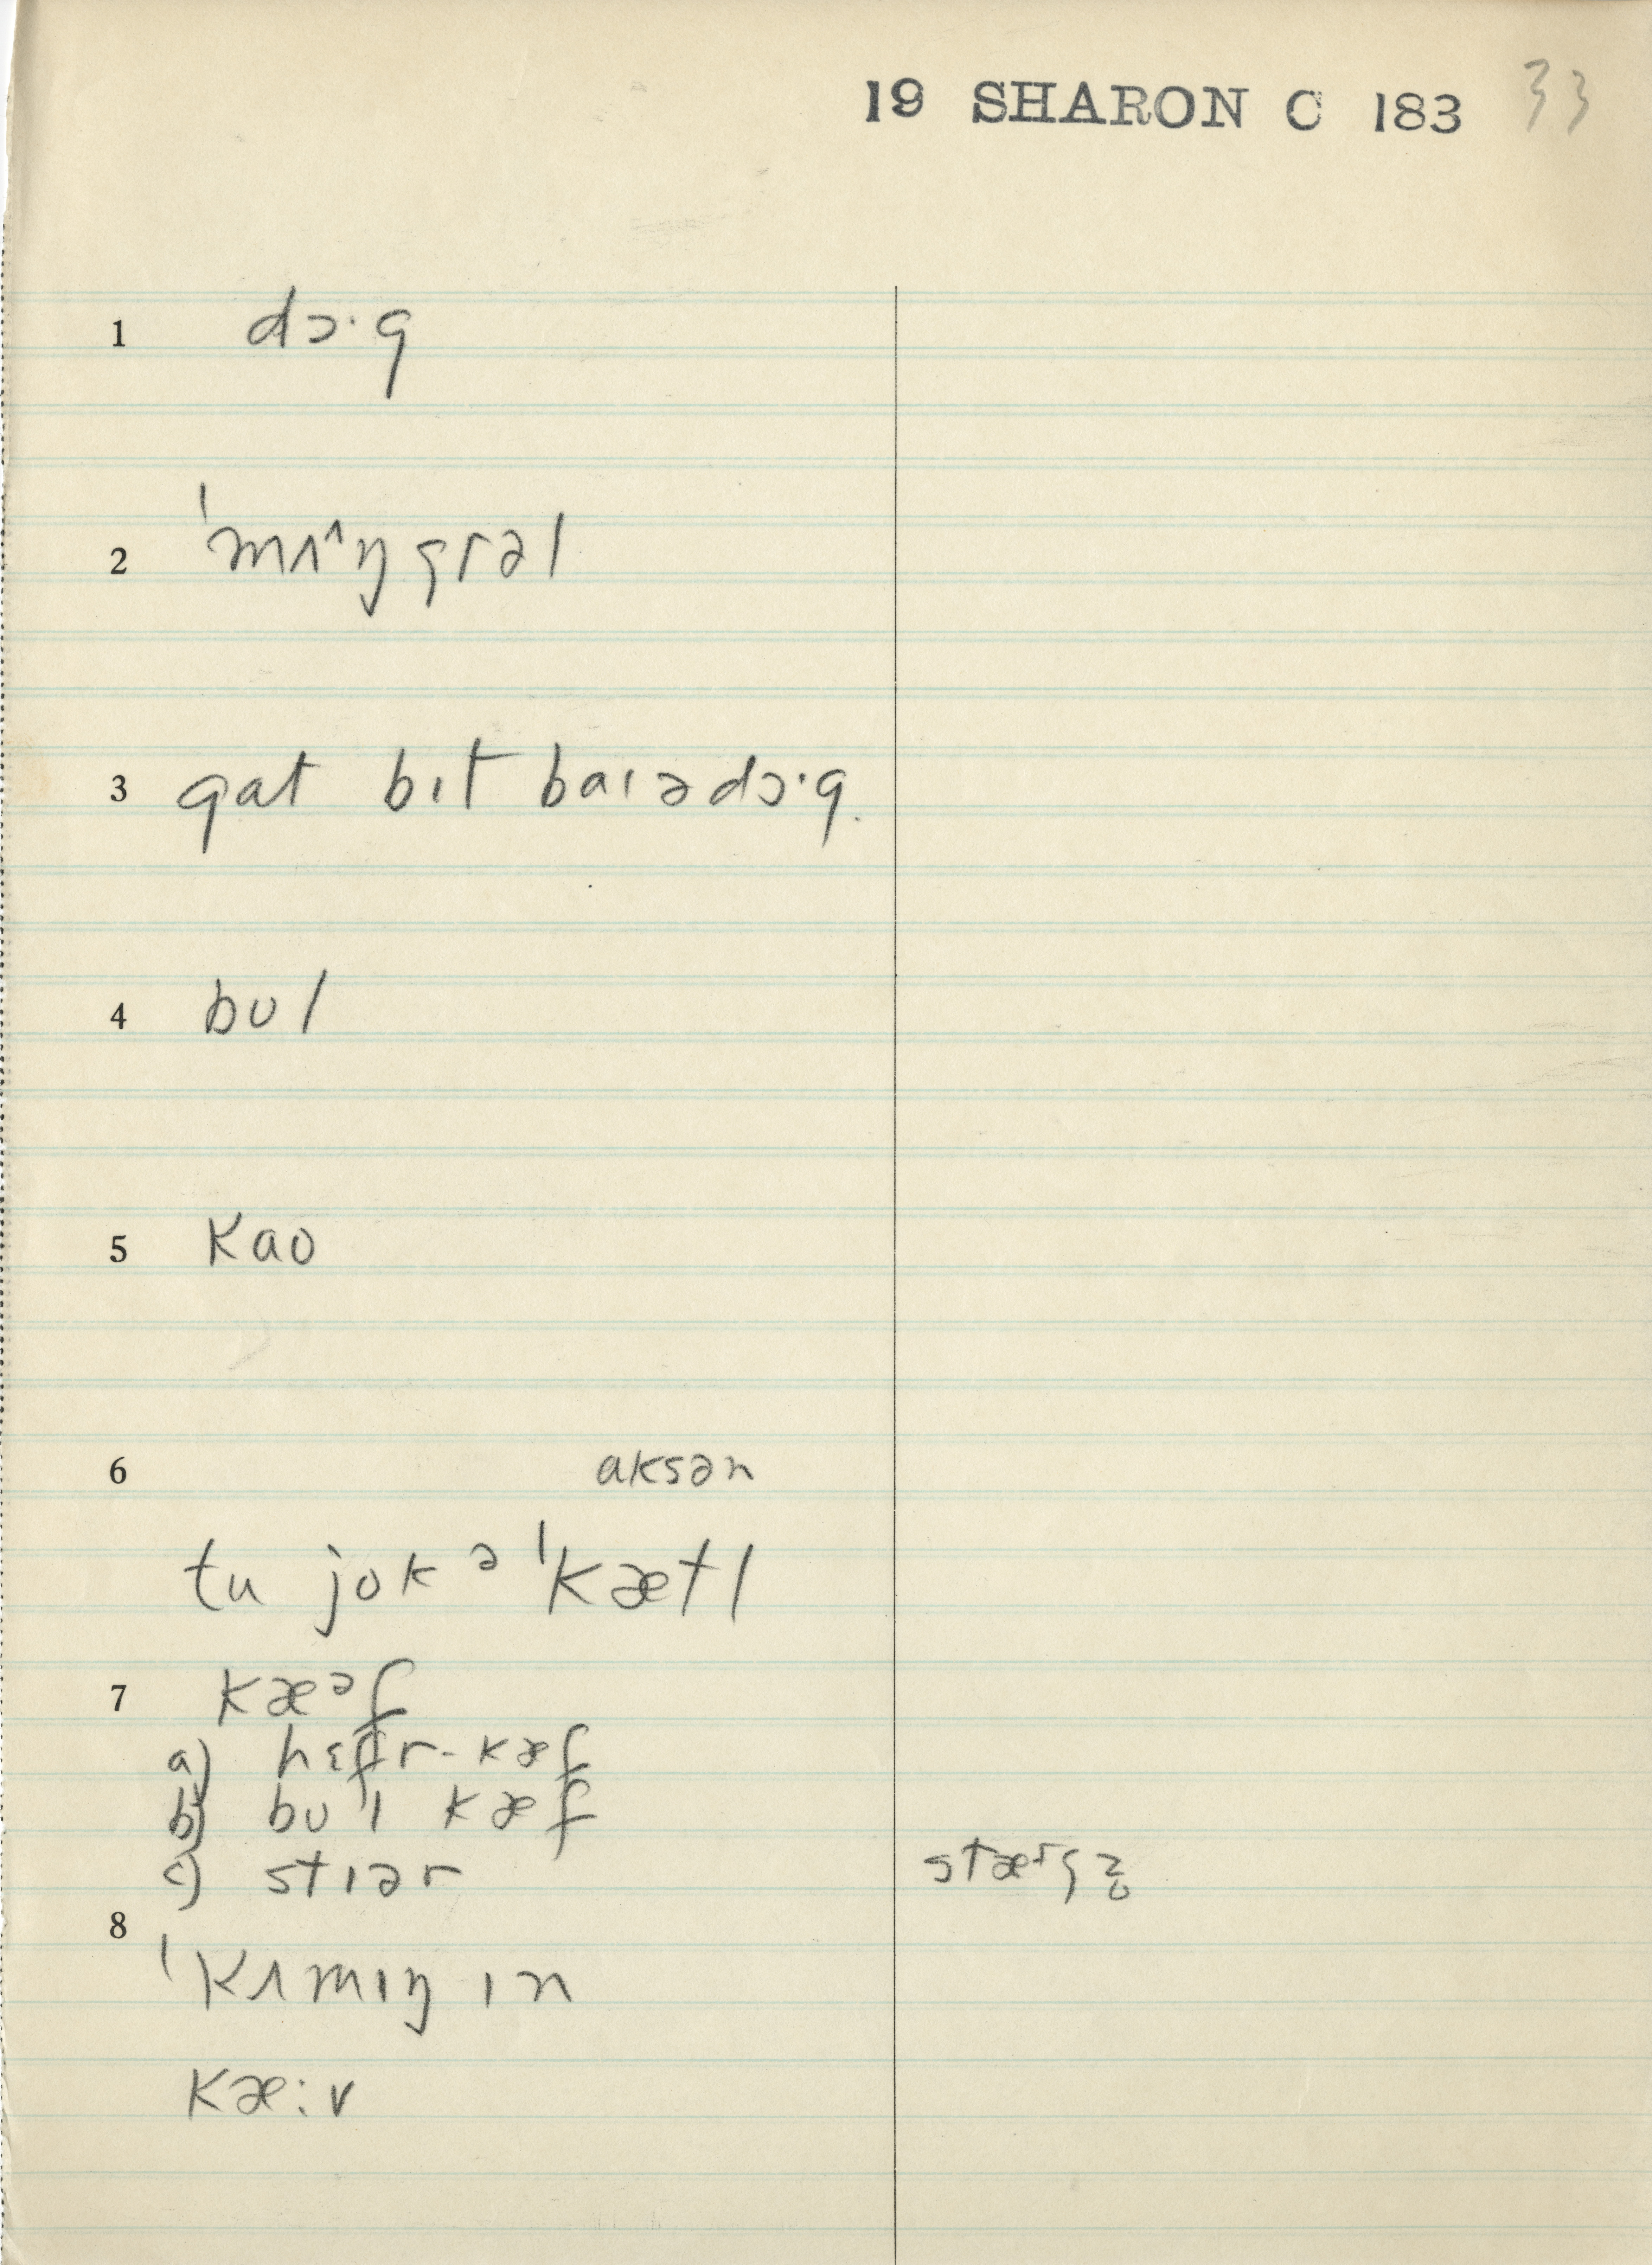 19 SHARON C 183 33
1 dɔ·g
2 ˈmʌ^ŋgrəl
3 gat bɪt baɪədɔ·g.
4 bʊl
5 kaʊ
6 aksən
tu jok ə ˈkætl
7 kæᵊf
a) hɛfr-kæf
b) bʊ'l kæf
c) stɪər stærgz̥
8 ˈkʌmɪŋ ɪn
kæ:v